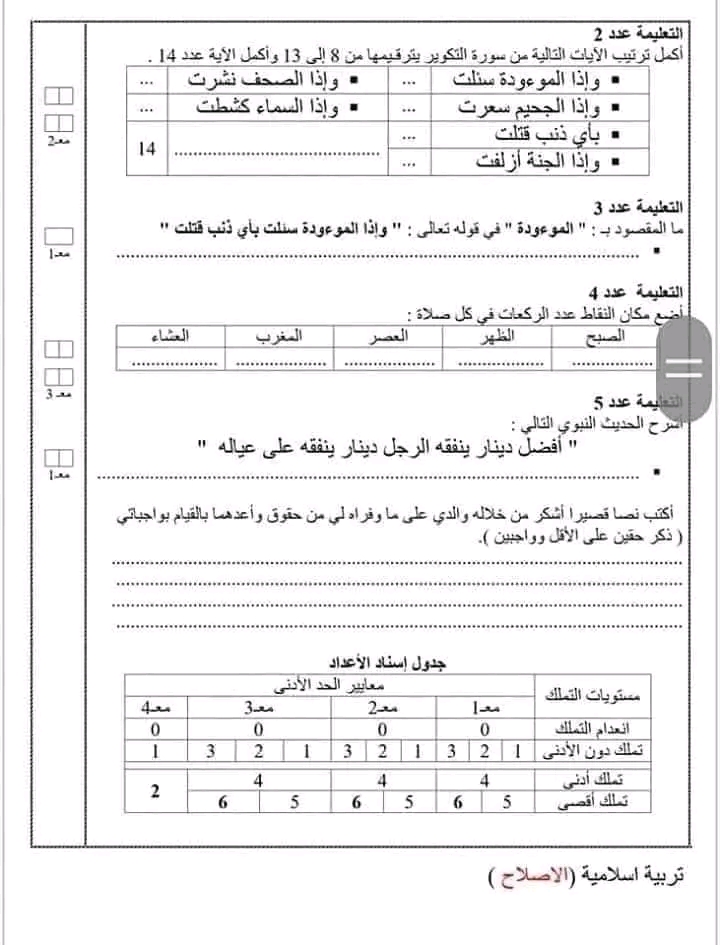 التعليمة عدد 2
أكمل ترتيب الآيات التالية من سورة التكوير بترقيمها من 8 إلى 13 وأكمل الآية عدد 14 .
▪ وإذا الموءودة سئلت ... ▪ وإذا الصحف نشرت ...
▪ وإذا الجحيم سعرت ... ▪ وإذا السماء كشطت ...
▪ بأي ذنب قتلت ... ................................ 14
▪ وإذا الجنة أزلفت ...
معـ2
التعليمة عدد 3
ما المقصود بـ : " الموءودة " في قوله تعالى : " وإذا الموءودة سئلت بأي ذنب قتلت "
▪ ................................................................
معـ1
التعليمة عدد 4
أضع مكان النقاط عدد الركعات في كل صلاة :
الصبح الظهر العصر المغرب العشاء
................ ................ ................ ................ ................
معـ 3
التعليمة عدد 5
أشرح الحديث النبوي التالي :
" أفضل دينار ينفقه الرجل دينار ينفقه على عياله "
▪ ................................................................
معـ1
أكتب نصا قصيرا أشكر من خلاله والدي على ما وفراه لي من حقوق وأعدهما بالقيام بواجباتي
( ذكر حقين على الأقل وواجبين ).
................................................................
................................................................
................................................................
................................................................
جدول إسناد الأعداد
مستويات التملك معايير الحد الأدنى
معـ1 معـ2 معـ3 معـ4
انعدام التملك 0 0 0 0
تملك دون الأدنى 1 2 3 1 2 3 1 2 3 1
تملك أدنى 4 4 4 2
تملك أقصى 5 6 5 6 5 6
تربية اسلامية (الاصلاح )